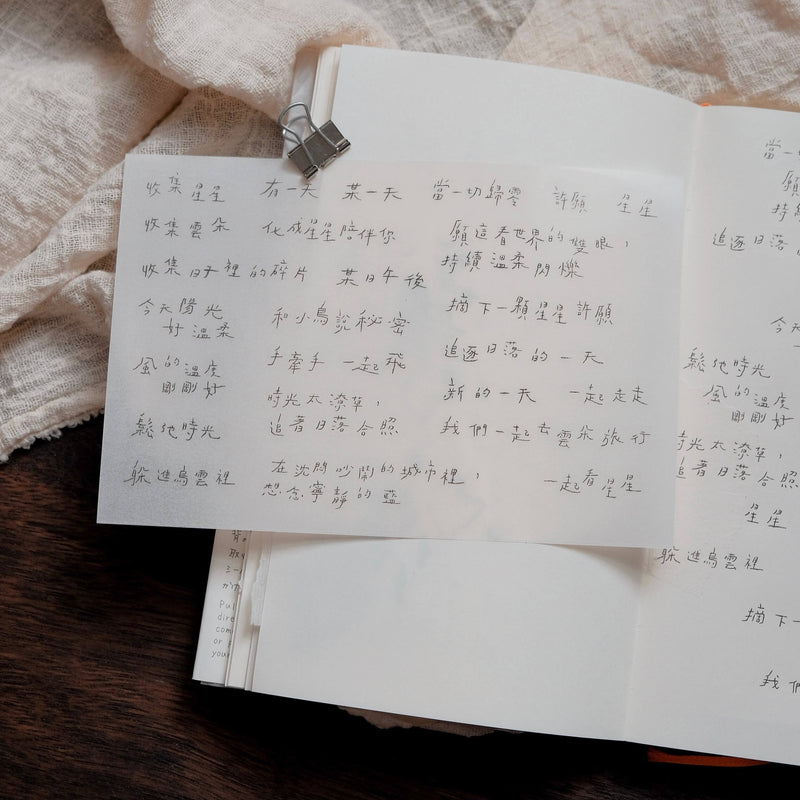 收集星星 有一天 某一天 當一切歸零 許願 星星
收集雲朵 化成星星陪伴你 願這看世界的雙眼，
持續溫柔閃爍
收集日子裡的碎片 某日午後
今天陽光
好溫柔
和小鳥說秘密 摘下一顆星星許願
風的溫度
剛剛好
手牽手 一起飛 追逐日落的一天
時光太潦草，
追著日落合照
新的一天 一起走走
鬆弛時光 我們一起去雲朵旅行
躲進烏雲裡
在沈悶吵鬧的城市裡，
想念寧靜的藍
一起看星星
當一
願
持續
追逐日落
今天
鬆弛時光
風的溫度
剛剛好
時光太潦草，
追著日落合照
星星
躲進烏雲裡
摘下一
我們
取
ミ
かけ
Pu
dire
com
or
your